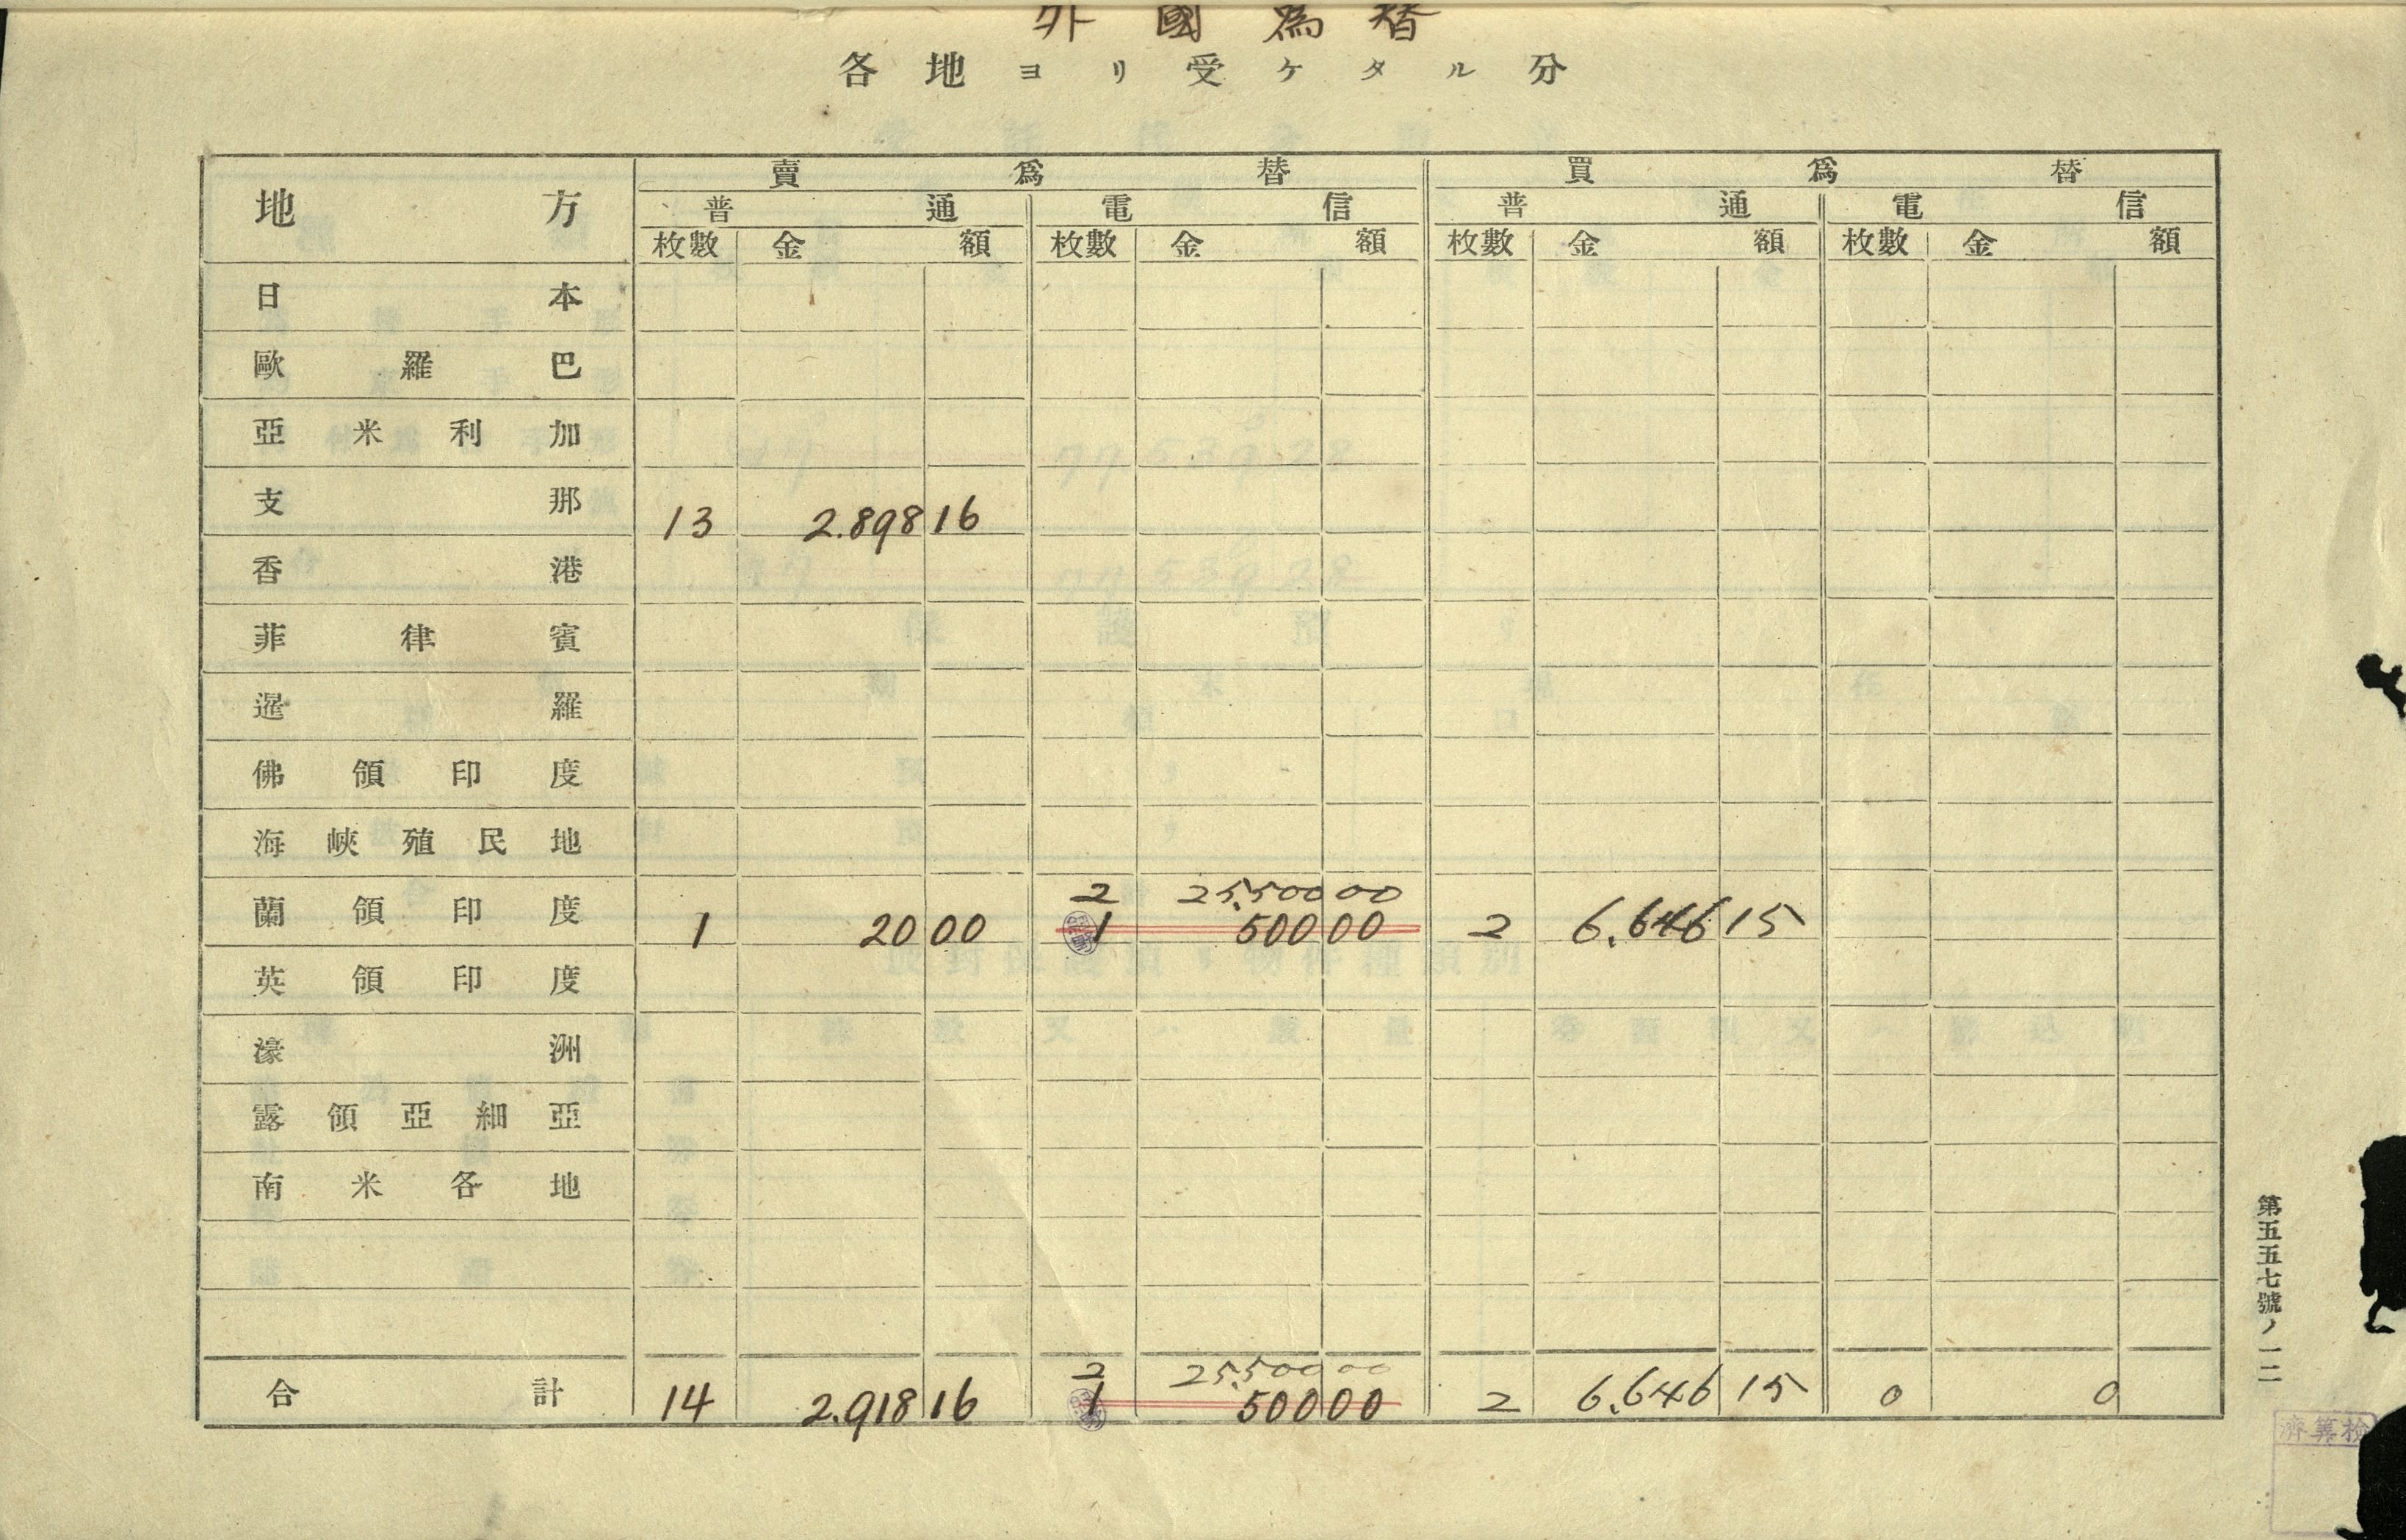 外國爲替
各地ヨリ受ケタル分
地方 賣爲替 買爲替
普通 電信 普通 電信
枚數 金額 枚數 金額 枚數 金額 枚數 金額
日本
歐羅巴
亞米利加
支那 13 2.898 16
香港
菲律賓
暹羅
佛領印度
海峽殖民地
2 25.500 00
蘭領印度 1 20 00 1 500 00 2 6.646 15
英領印度
濠洲
露領亞細亞
南米各地
2 25.500 00
合計 14 2.918 16 1 500 00 2 6.646 15 0 0
第五五七號ノ一二
濟筭檢